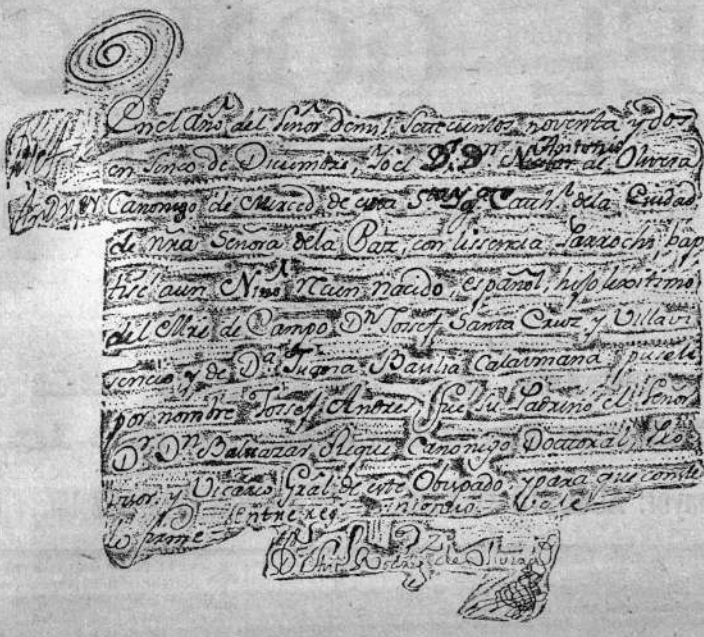 En el Año del Señor de mil Setecientos noventa y dos
en sinco de Diciembre, Yo el D.r D.n Antonio de Olivera
Canonigo de Merced de esta S.ta Yg.a Cath.l de la Ciudad
de nra Señora de la Paz, con lissencia Parrochi, bap
tisé a un Niño recien nacido, español, hijo lexitimo
del Mre de Campo D.n Jossef Santa Cruz y Villavi
sencio, y de D.a Basilia Calaumana puesele
por nombre Jossef Andres, fue su Padrino el Señor
D.r D.n Baltazar Canonigo Doctoral Pro
visor y Vicario Gral de este Obispado, y para que conste
lo firme entre
de Olivera